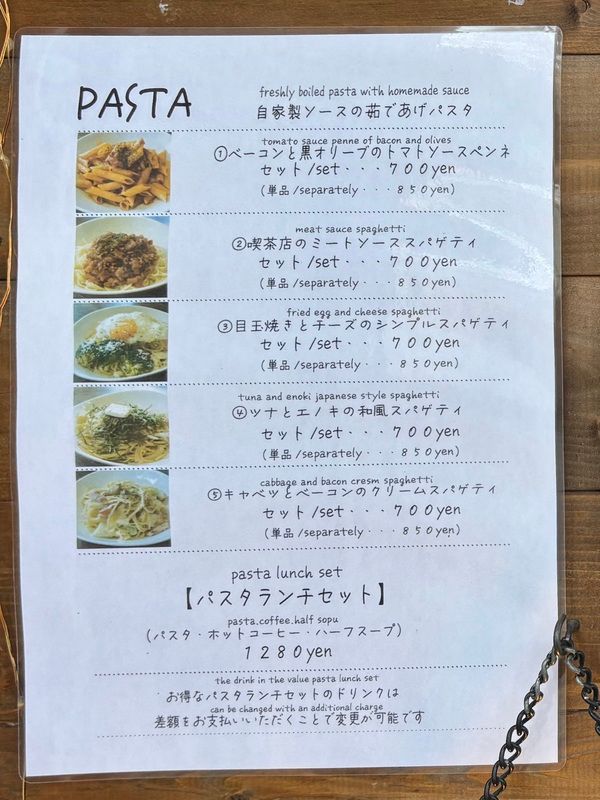 PASTA
freshly boiled pasta with homemade sauce
自家製ソースの茹であげパスタ
tomato sauce penne of bacon and olives
①ベーコンと黒オリーブのトマトソースペンネ
セット/set・・・７００yen
(単品/separately・・・８５０yen)
meat sauce spaghetti
②喫茶店のミートソーススパゲティ
セット/set・・・７００yen
(単品/separately・・・８５０yen)
fried egg and cheese spaghetti
③目玉焼きとチーズのシンプルスパゲティ
セット/set・・・７００yen
(単品/separately・・・８５０yen)
tuna and enoki japanese style spaghetti
④ツナとエノキの和風スパゲティ
セット/set・・・７００yen
(単品/separately・・・８５０yen)
cabbage and bacon cresm spaghetti
⑤キャベツとベーコンのクリームスパゲティ
セット/set・・・７００yen
(単品/separately・・・８５０yen)
pasta lunch set
【パスタランチセット】
pasta.coffee.half sopu
(パスタ・ホットコーヒー・ハーフスープ)
１２８０yen
the drink in the value pasta lunch set
お得なパスタランチセットのドリンクは
can be changed with an additional charge
差額をお支払いいただくことで変更が可能です